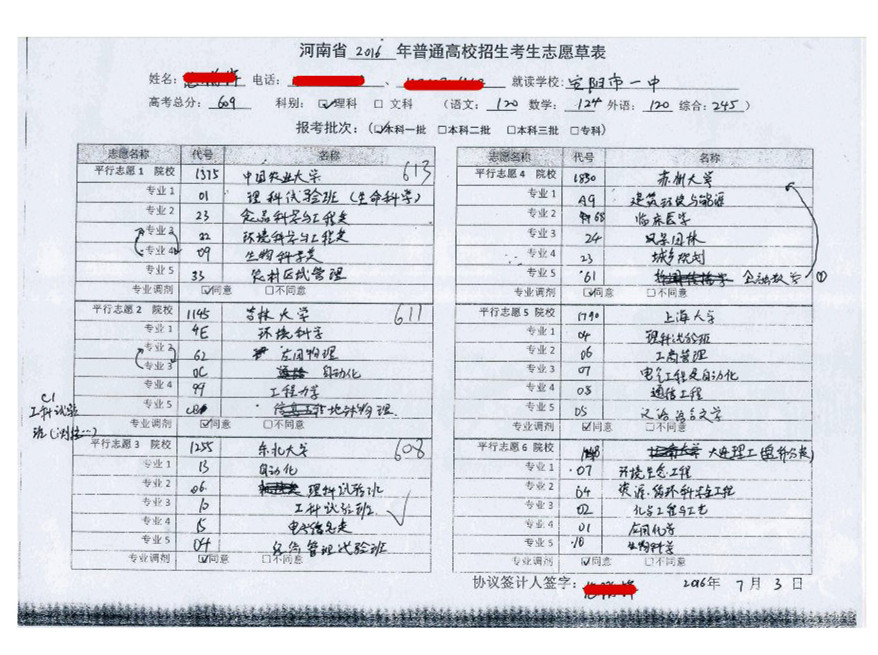 河南省 2016 年普通高校招生考生志愿草表
姓名: 电话: 、 就读学校: 宝阳市一中
高考总分: 609 科别: ☑理科 □ 文科 (语文: 120 数学: 124 外语: 120 综合: 245 )
报考批次: (☑本科一批 □本科二批 □本科三批 □专科)
志愿名称 代号 名称
平行志愿 1 院校 1375 中国农业大学 613
专业 1 01 理科试验班 (生命科学)
专业 2 23 食品科学与工程类
专业 3 22 环境科学与工程类
专业 4 09 生物科学类
专业 5 33 农村区域管理
专业调剂 ☑同意 □不同意
平行志愿 2 院校 1145 吉林大学 611
专业 1 4E 环境科学
专业 2 62 应用物理
专业 3 0C 自动化
专业 4 99 工程力学
专业 5 地球物理
C1
工科试验
班
专业调剂 ☑同意 □不同意
平行志愿 3 院校 1255 东北大学 608
专业 1 13 自动化
专业 2 06 理科试验班
专业 3 10 工科试验班
专业 4 15 电子信息类
专业 5 04 管理试验班
专业调剂 ☑同意 □不同意
志愿名称 代号 名称
平行志愿 4 院校 1830 苏州大学
专业 1 A9 建筑环境与能源
专业 2 68 临床医学
专业 3 24 风景园林
专业 4 23 城乡规划
专业 5 61 金融数学 ①
专业调剂 ☑同意 □不同意
平行志愿 5 院校 1790 上海大学
专业 1 04 理科试验班
专业 2 06 工商管理
专业 3 07 电气工程及自动化
专业 4 08 通信工程
专业 5 05 汉语言文学
专业调剂 ☑同意 □不同意
平行志愿 6 院校 大连理工(盘锦分类)
专业 1 07 环境生态工程
专业 2 04 资源循环科学与工程
专业 3 02 化学工程与工艺
专业 4 01 应用化学
专业 5 18 生物科学
专业调剂 ☑同意 □不同意
协议签计人签字: 2016年 7 月 3 日